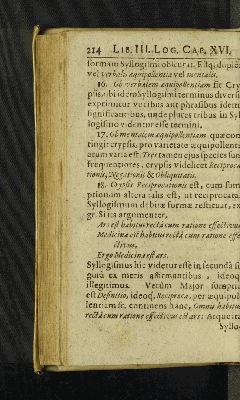 214 LIB. III. LOG. CAP. XVI.
formam Syllogismi obscurat. Estq; duplex
vel verbalis aequipollentiae vel mentalis.
16. Ob verbalem aequipollentiam fit Cry-
psis, ubi idem Syllogismi terminus diversis
exprimitur vocibus aut phrasibus idem
significantibus, unde plures tribus in Syl-
logismo videntur esse termini.
17. Ob mentalem aequipollentiam quae con-
tingit crypsis, pro varietate aequipollentia-
rum varia est. Tres tamen ejus species sunt
frequentiores: crypsis videlicet Reciproca-
tionis, Negationis & Obliquitatis.
18. Crypsis Reciprocationis est, cum sum-
ptionum altera talis est, ut reciprocata
Syllogismum debitae formae restituat, ex.
gr. Si ita argumenter,
Ars est habitus rectâ cum ratione effectivus
Medicina est habitus rectâ cum ratione effe-
ctivus,
Ergo Medicina est ars.
Syllogismus hic videtur esse in secundâ fi-
gurâ ex meris affirmantibus, ideoq;
illegitimus. Verùm Major sumptio
est Definitio, ideoq; Reciproca, per aequipol-
lentiam sc. continens hanc, Omnis habitus
rectâ cum ratione effectivus est ars: Atque ita
Syllo-